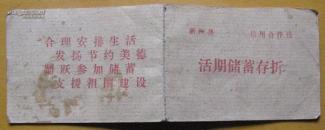 合理安排生活
发扬节约美德
踊跃参加储蓄
支援祖国建设
信用合作社
活期储蓄存折